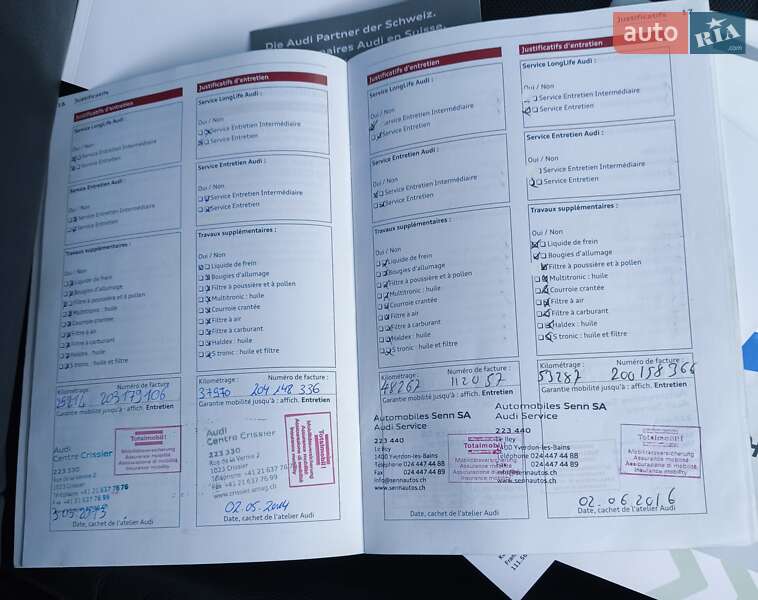 Die Audi Partner der Schweiz.
naires Audi en Suisse.
auto RIA.com
Justificatifs
Justificatifs d'entretien
Service LongLife Audi :
Oui / Non
Service Entretien Intermédiaire
Service Entretien
Service Entretien Audi :
Oui / Non
Service Entretien Intermédiaire
Service Entretien
Travaux supplémentaires :
Oui / Non
Liquide de frein
Bougies d'allumage
Filtre à poussière et à pollen
Multitronic : huile
Courroie crantée
Filtre à air
Filtre à carburant
Haldex : huile
S tronic : huile et filtre
Kilométrage : Numéro de facture :
203179106
Garantie mobilité jusqu'à : affich. Entretien
Audi
Centre Crissier
223 330
Rue de la Vernie 2
1023 Crissier
Téléphone +41 21 637 76 76
Fax +41 21 637 76 99
Totalmobil!
Mobilitätsversicherung
Assurance mobilité
Assicurazione di mobilità
Insurance mobility
Date, cachet de l'atelier Audi
Justificatifs d'entretien
Service LongLife Audi :
Oui / Non
Service Entretien Intermédiaire
Service Entretien
Service Entretien Audi :
Oui / Non
Service Entretien Intermédiaire
Service Entretien
Travaux supplémentaires :
Oui / Non
Liquide de frein
Bougies d'allumage
Filtre à poussière et à pollen
Multitronic : huile
Courroie crantée
Filtre à air
Filtre à carburant
Haldex : huile
S tronic : huile et filtre
Kilométrage : Numéro de facture :
37970 204 148 336
Garantie mobilité jusqu'à : affich. Entretien
Audi
Centre Crissier
223 330
Rue de la Vernie 2
1023 Crissier
Téléphone +41 21 637 76 76
Fax +41 21 637 76 99
www.crissier.amag.ch
Totalmobil!
Mobilitätsversicherung
Assurance mobilité
Assicurazione di mobilità
Insurance mobility
02.05.2014
Date, cachet de l'atelier Audi
Justificatifs d'entretien
Service LongLife Audi :
Oui / Non
Service Entretien Intermédiaire
Service Entretien
Service Entretien Audi :
Oui / Non
Service Entretien Intermédiaire
Service Entretien
Travaux supplémentaires :
Oui / Non
Liquide de frein
Bougies d'allumage
Filtre à poussière et à pollen
Multitronic : huile
Courroie crantée
Filtre à air
Filtre à carburant
Haldex : huile
S tronic : huile et filtre
Kilométrage : Numéro de facture :
48267 112057
Garantie mobilité jusqu'à : affich. Entretien
Automobiles Senn SA
Audi Service
223 440
Le Bey
1400 Yverdon-les-Bains
Téléphone 024 447 44 88
Fax 024 447 44 89
info@sennautos.ch
www.sennautos.ch
Totalmobil!
Mobilitätsversicherung
Assurance mobilité
Assicurazione di mobilità
Insurance mobility
Date, cachet de l'atelier Audi
Justificatifs
17
Justificatifs d'entretien
Service LongLife Audi :
Oui / Non
Service Entretien Intermédiaire
Service Entretien
Service Entretien Audi :
Oui / Non
Service Entretien Intermédiaire
Service Entretien
Travaux supplémentaires :
Oui / Non
Liquide de frein
Bougies d'allumage
Filtre à poussière et à pollen
Multitronic : huile
Courroie crantée
Filtre à air
Filtre à carburant
Haldex : huile
S tronic : huile et filtre
Kilométrage : Numéro de facture :
53287 200 158 366
Garantie mobilité jusqu'à : affich. Entretien
Automobiles Senn SA
Audi Service
223 440
Le Bey
1400 Yverdon-les-Bains
Téléphone 024 447 44 88
Fax 024 447 44 89
info@sennautos.ch
www.sennautos.ch
Totalmobil!
Mobilitätsversicherung
Assurance mobilité
Assicurazione di mobilità
Insurance mobility
02.06.2016
Date, cachet de l'atelier Audi